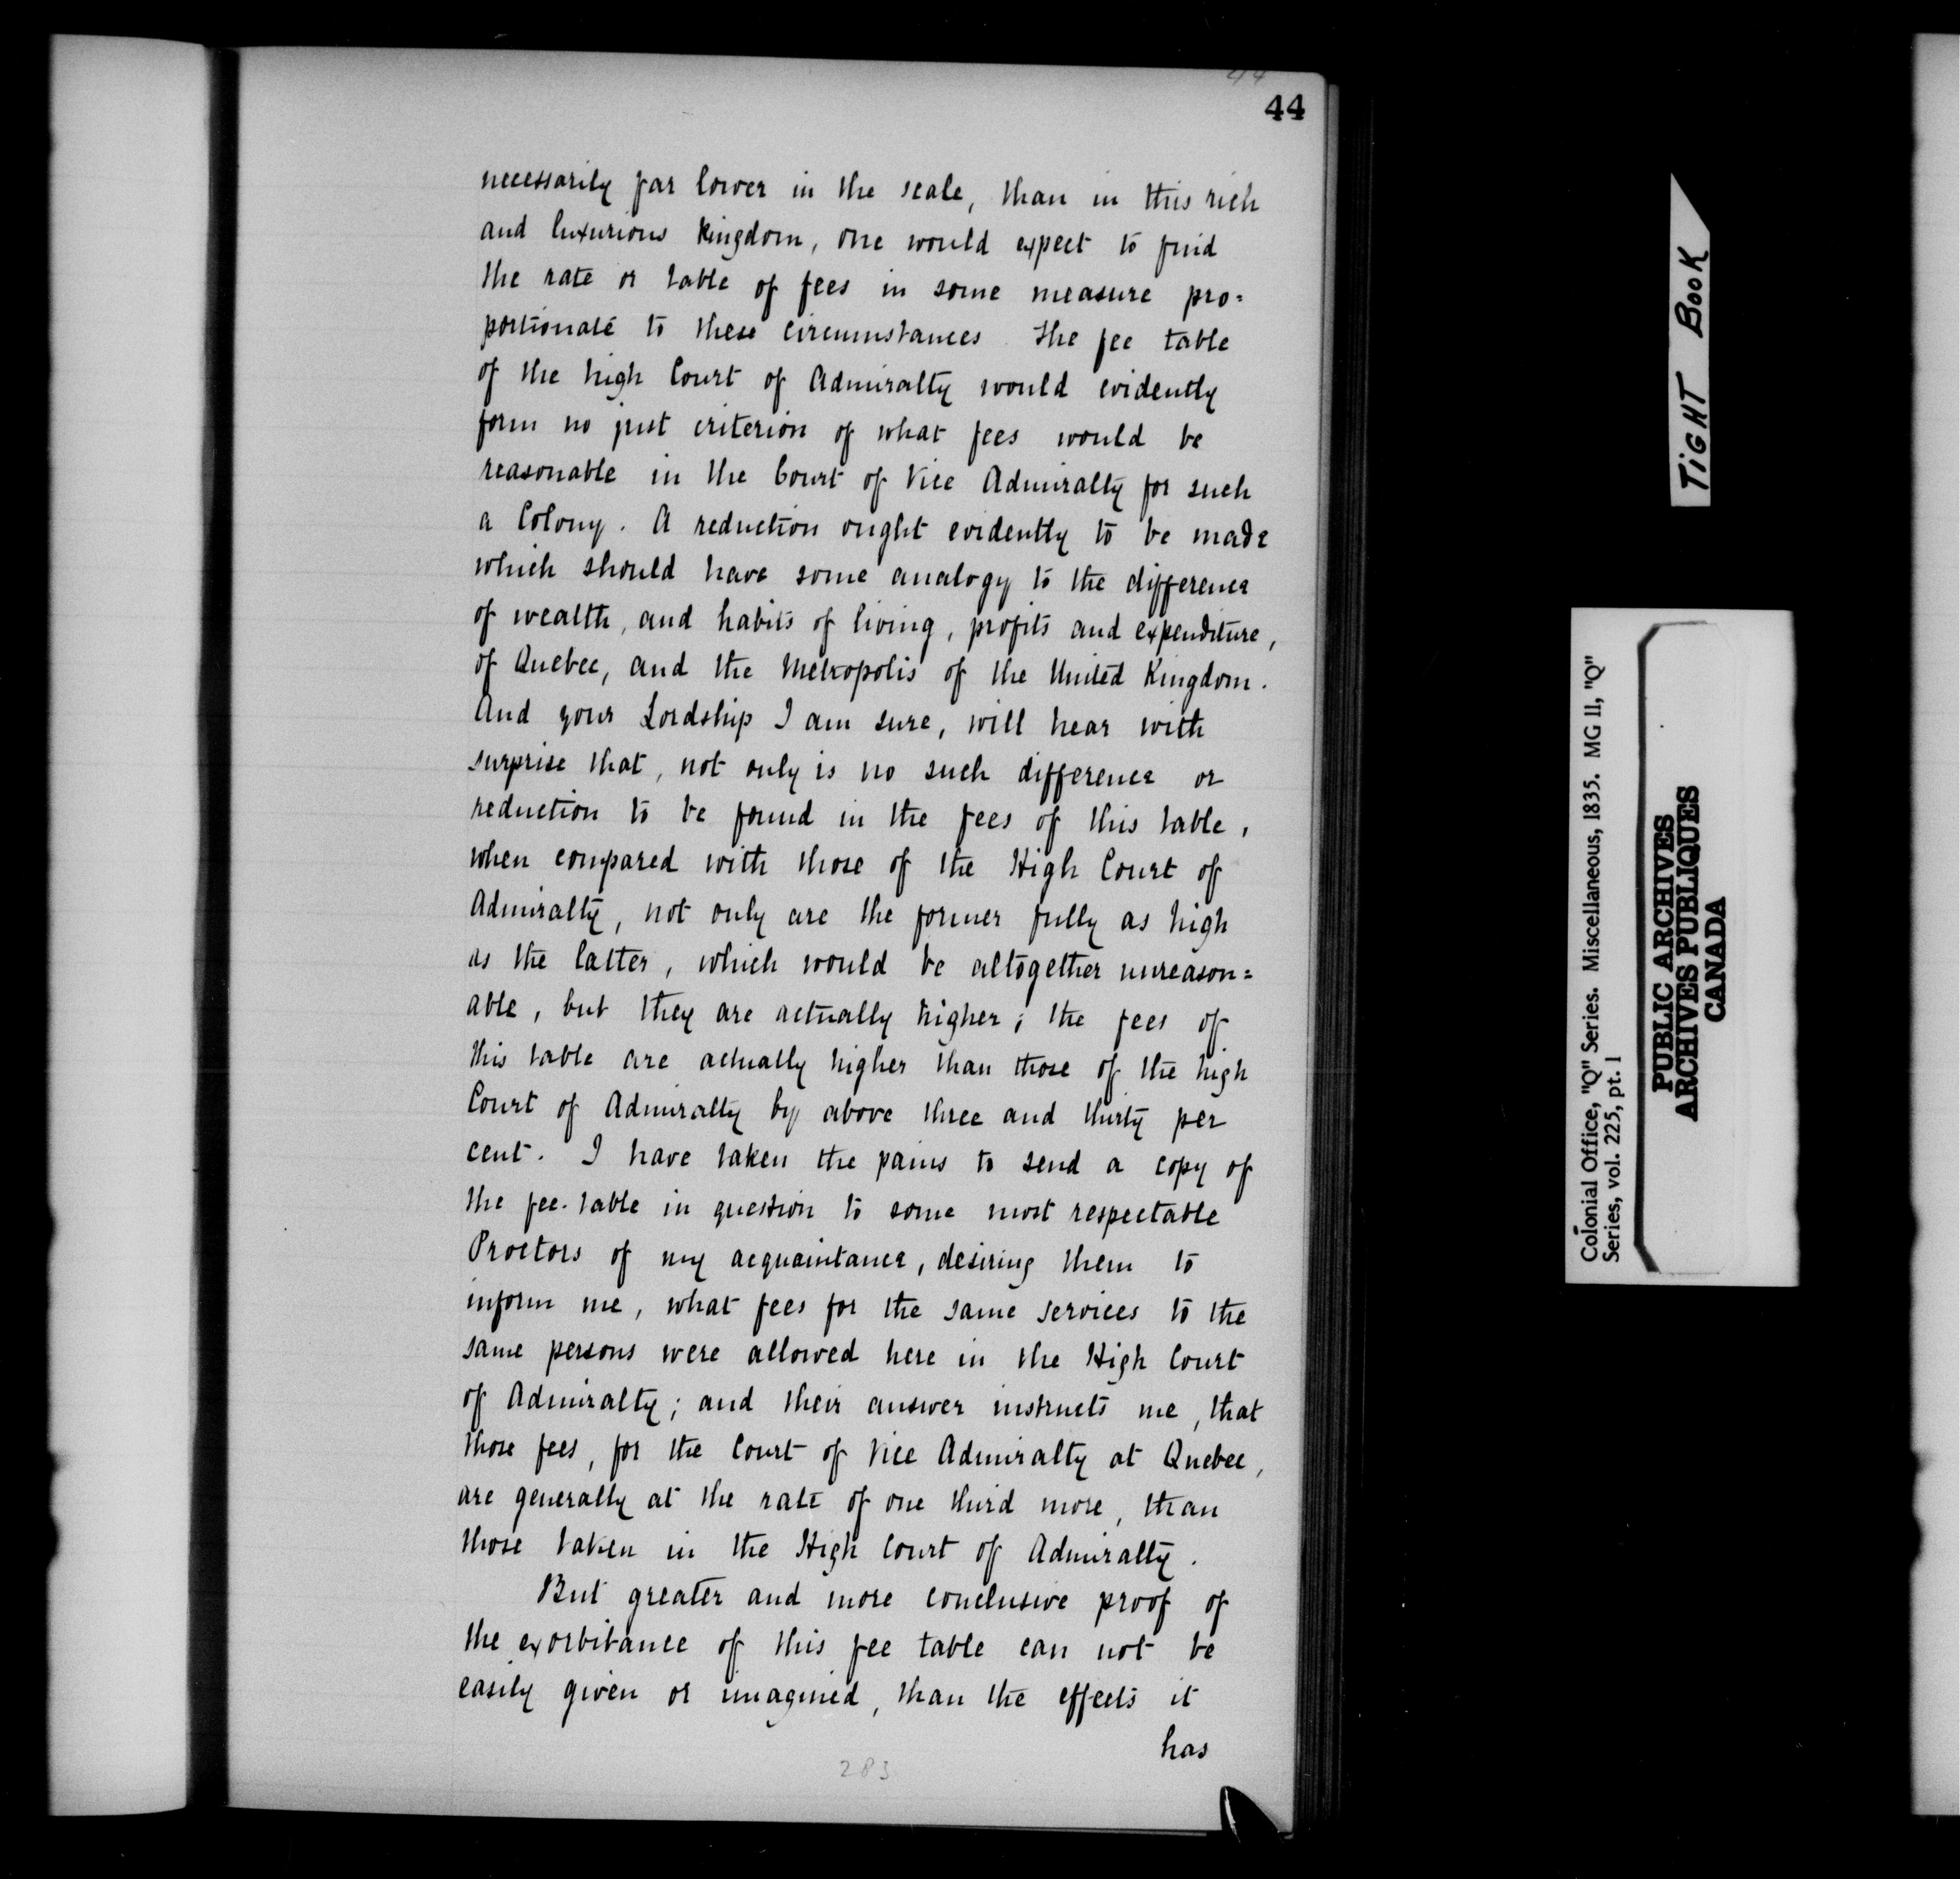 44
44
necessarily far lower in the scale, than in this rich
and luxurious kingdom, one would expect to find
the rate or table of fees in some measure pro=
portionate to these circumstances. The fee table
of the high Court of Admiralty would evidently
form no just criterion of what fees would be
reasonable in the Court of Vice Admiralty for such
a Colony. A reduction ought evidently to be made
which should have some analogy to the difference
of wealth, and habits of living, profits and expenditure,
of Quebec, and the Metropolis of the United Kingdom.
And your Lordship I am sure, will hear with
surprise that, not only is no such difference or
reduction to be found in the fees of this table,
when compared with those of the High Court of
Admiralty, not only are the former fully as high
as the latter, which would be altogether unreason=
able, but they are actually higher; the fees of
this table are actually higher than those of the high
Court of Admiralty by above three and thirty per
cent. I have taken the pains to send a copy of
the fee-table in question to some most respectable
Proctors of my acquaintance, desiring them to
inform me, what fees for the same services to the
same persons were allowed here in the High Court
of Admiralty; and their answer instructs me, that
those fees, for the Court of Vice Admiralty at Quebec,
are generally at the rate of one third more, than
those taken in the High Court of Admiralty.
But greater and more conclusive proof of
the exorbitance of this fee table can not be
easily given or imagined, than the effects it
has
283
TIGHT BOOK
Colonial Office, "Q" Series. Miscellaneous, 1835. MG 11, "Q"
Series, vol. 225, pt. 1
PUBLIC ARCHIVES
ARCHIVES PUBLIQUES
CANADA